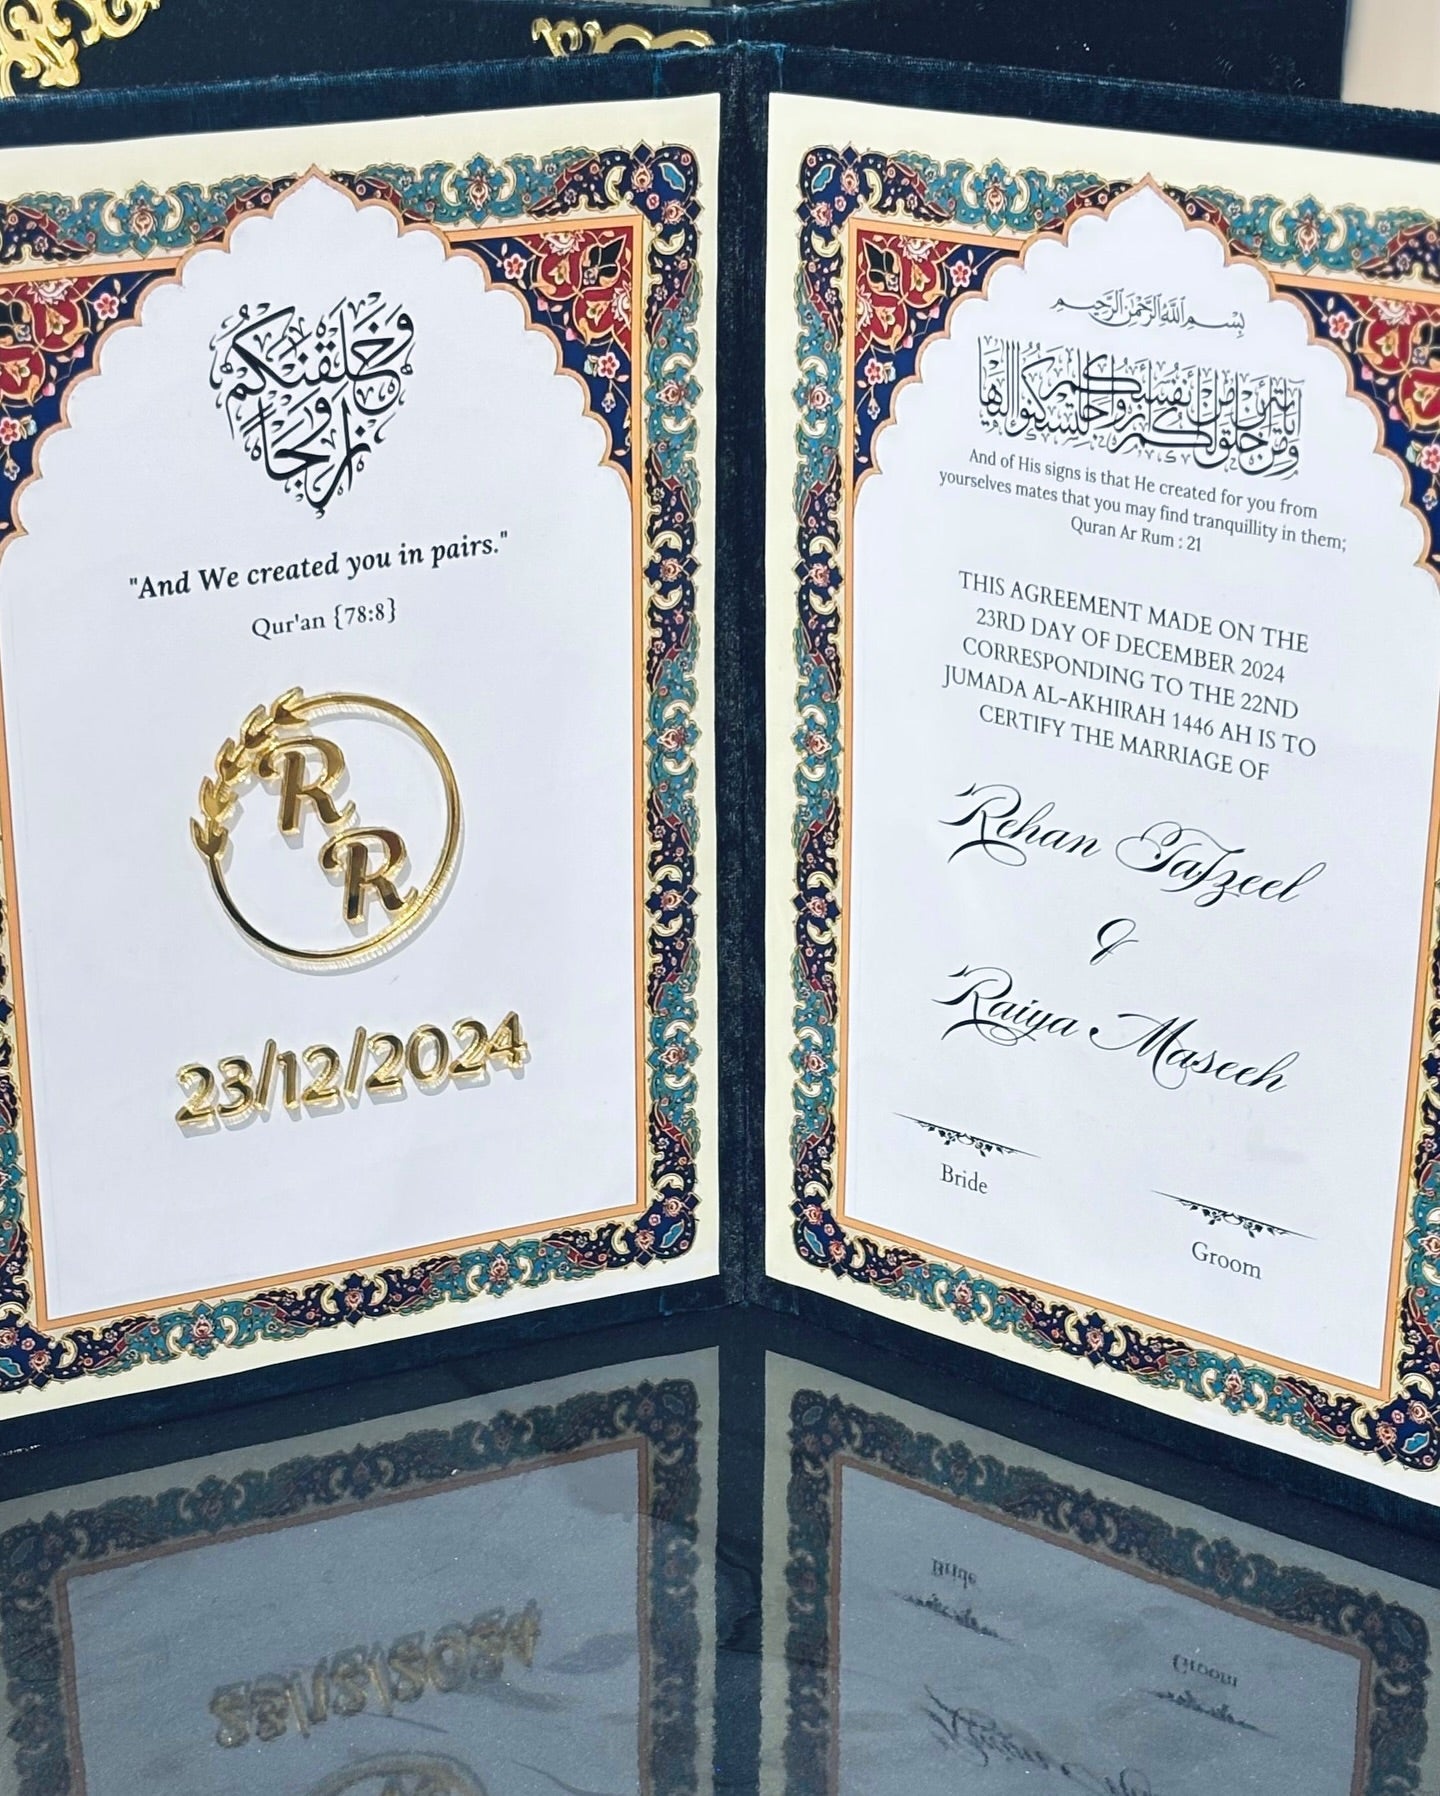 وَخَلَقْنَٰكُمْ
أَزْوَٰجًا
"And We created you in pairs."
Qur'an {78:8}
R
R
23/12/2024
بِسْمِ اللَّهِ الرَّحْمَٰنِ الرَّحِيمِ
وَمِنْ آيَاتِهِ أَنْ خَلَقَ لَكُم مِّنْ أَنفُسِكُمْ أَزْوَاجًا لِّتَسْكُنُوا إِلَيْهَا
And of His signs is that He created for you from
yourselves mates that you may find tranquillity in them;
Quran Ar Rum : 21
THIS AGREEMENT MADE ON THE
23RD DAY OF DECEMBER 2024
CORRESPONDING TO THE 22ND
JUMADA AL-AKHIRAH 1446 AH IS TO
CERTIFY THE MARRIAGE OF
Rehan Tafzeel
&
Raiya Maseeh
Bride
Groom